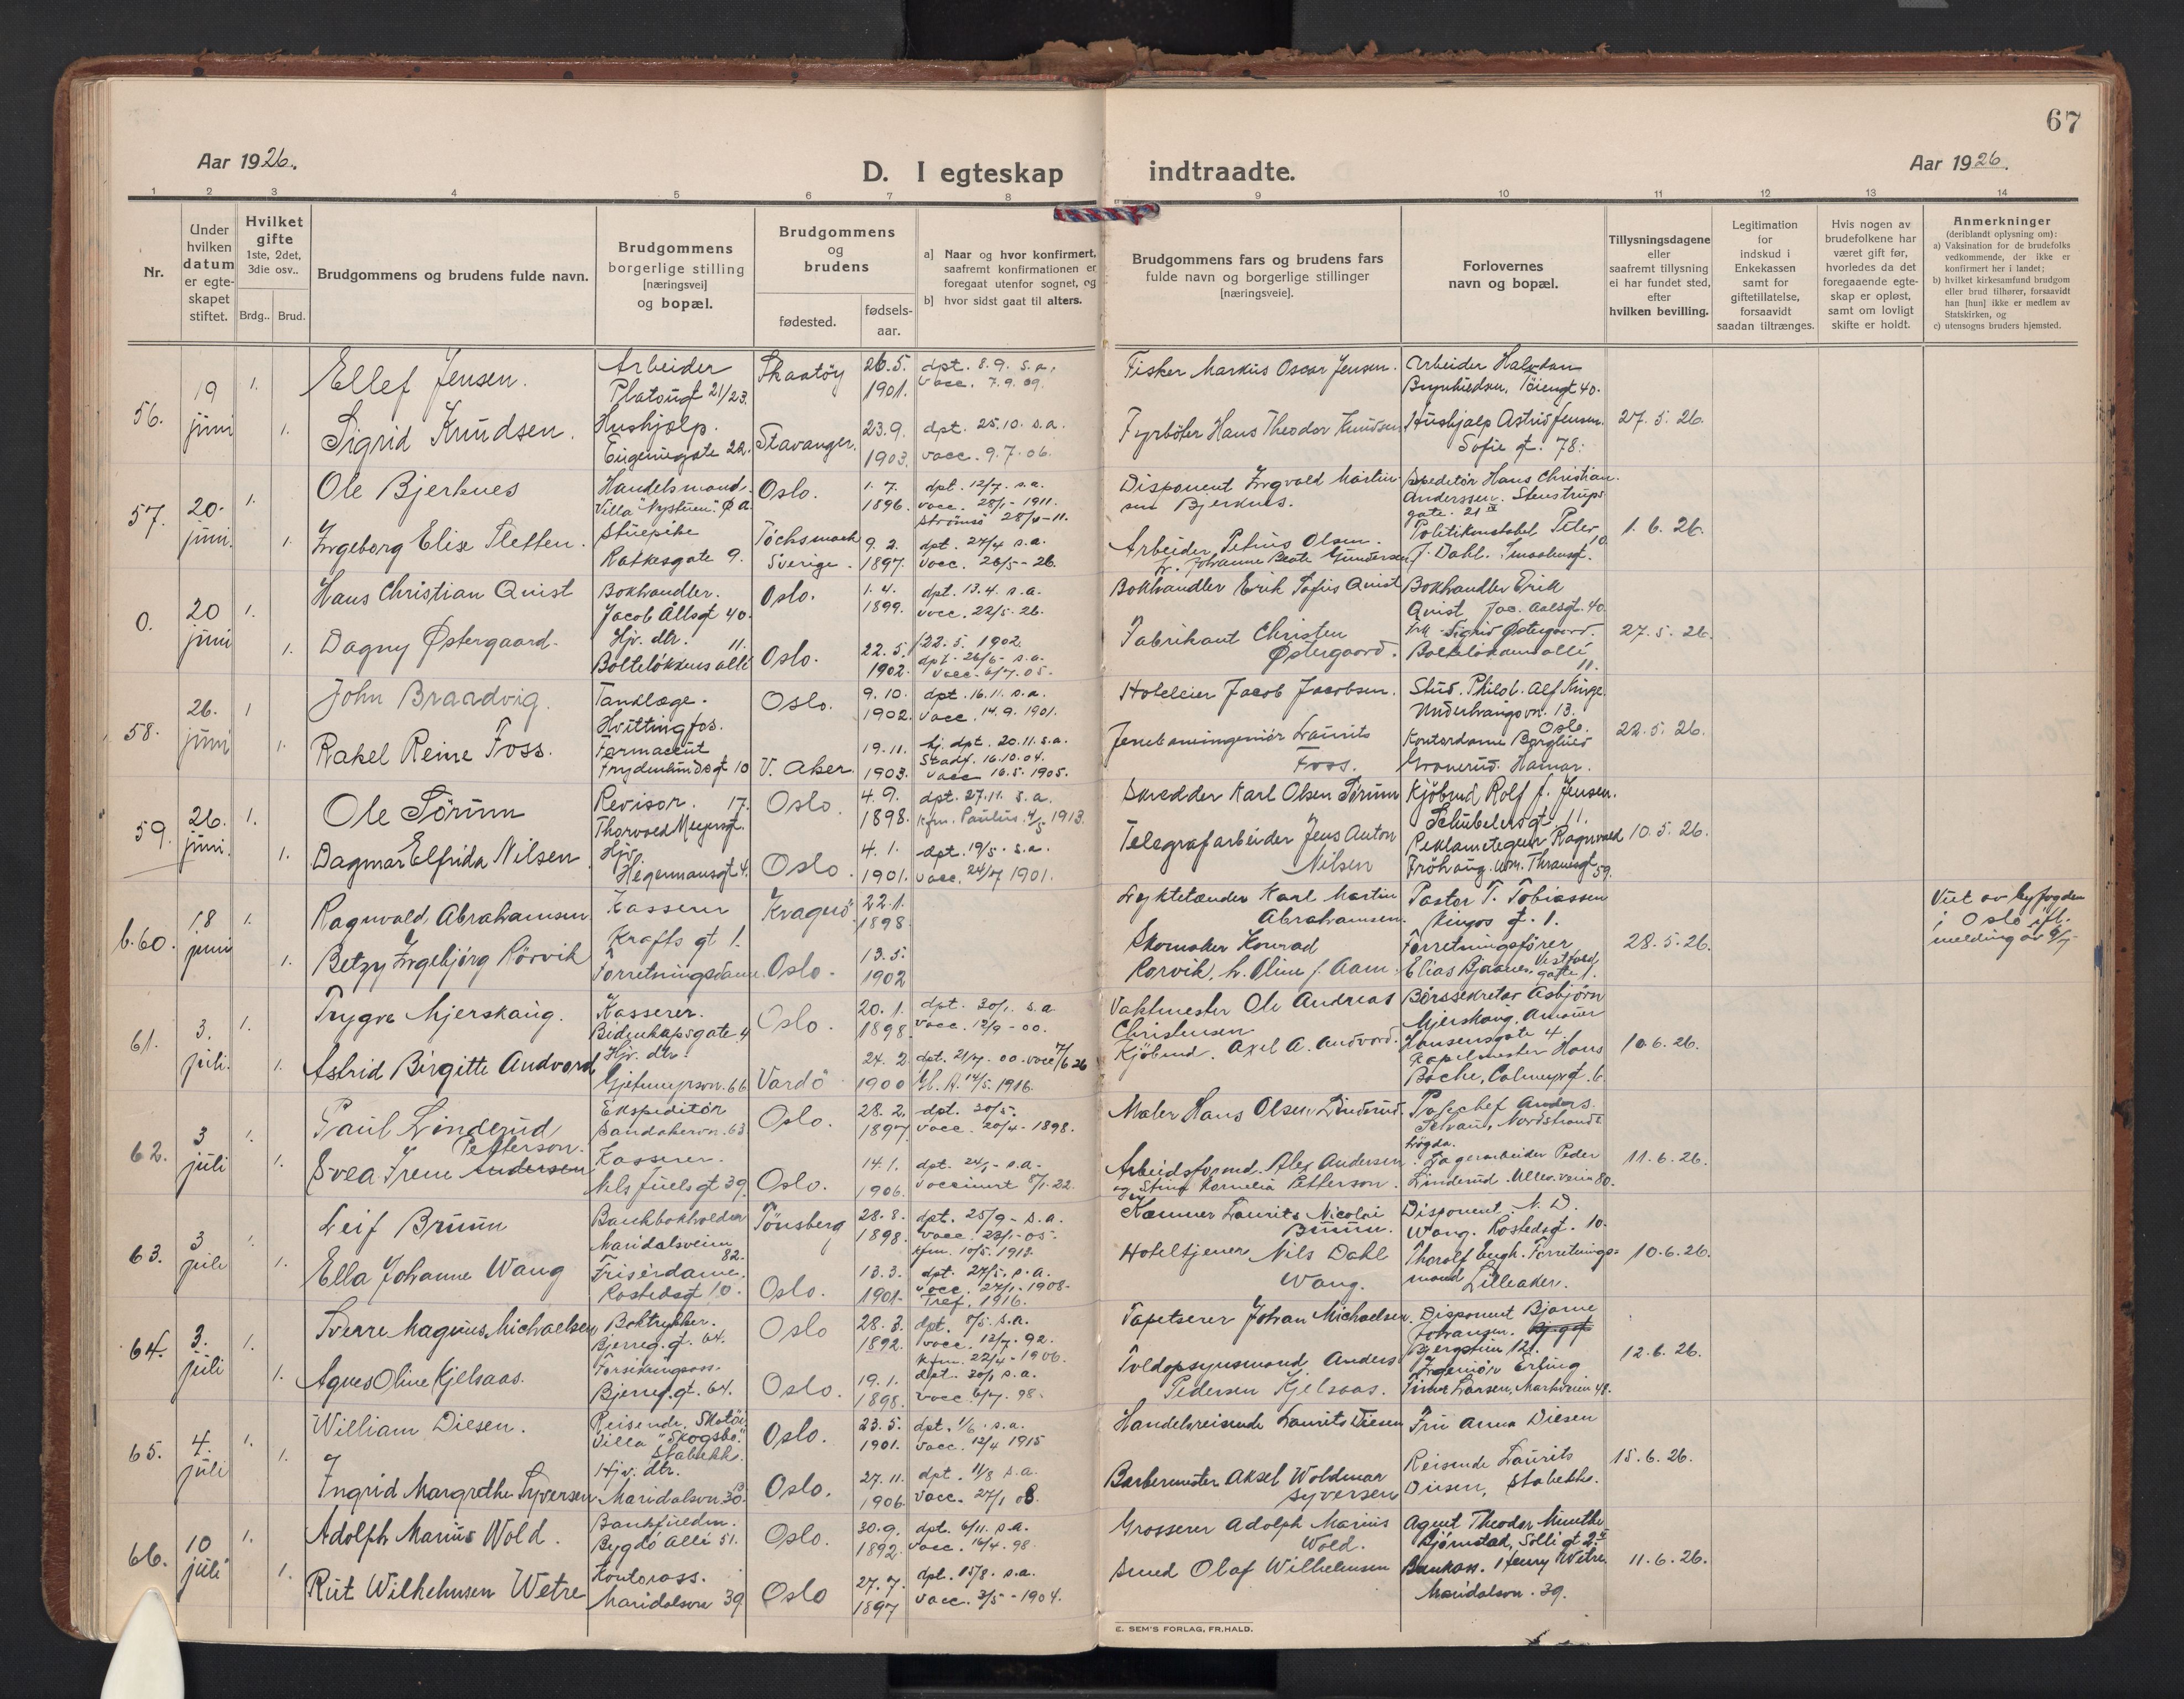 67
Aar 1926.
D. I egteskap indtraadte.
Aar 1926.
1 2 3 4 5 6 7 8 9 10 11 12 13 14
Nr.
Under hvilken datum er egte-skapet stiftet.
Hvilket gifte
1ste, 2det, 3die osv..
Brdg.. Brud.
Brudgommens og brudens fulde navn.
Brudgommens borgerlige stilling [næringsvei] og bopæl.
Brudgommens og brudens
fødested.
fødsels-aar.
a] Naar og hvor konfirmert, saafremt konfirmationen er foregaat utenfor sognet, og
b] hvor sidst gaat til alters.
Brudgommens fars og brudens fars fulde navn og borgerlige stillinger [næringsveie].
Forlovernes navn og bopæl.
Tillysningsdagene eller saafremt tillysning ei har fundet sted, efter hvilken bevilling.
Legitimation for indskud i Enkekassen samt for giftetillatelse, forsaavidt saadan tiltrænges.
Hvis nogen av brudefolkene har været gift før, hvorledes da det foregaaende egte-skap er opløst, samt om lovligt skifte er holdt.
Anmerkninger
(deriblandt oplysning om):
a) Vaksination for de brudefolks vedkommende, der ikke er konfirmert her i landet;
b) hvilket kirkesamfund brudgom eller brud tilhører, forsaavidt han [hun] ikke er medlem av Statskirken, og
c) utensogns bruders hjemsted.
56. 19 juni
1. Ellef Jensen. Arbeider Platougt 21/23. Skaatöy 26.5. 1901. dpt. 8.9. s.a. vacc. 7.9.09. Fisker Markus Oscar Jensen. Arbeider Halvdan Töiengt 40.
1. Sigrid Knudsen. Hushjælp. Eugeniegate 22. Stavanger. 23.9. 1903. dpt. 25.10. s.a. vacc. 9.7.06. Fyrböter Hans Theodor Knudsen Hushjælp Astrid Jensen. Sofie gt. 78. 27.5.26.
57. 20. juni.
1. Ole Bjerknes Handelsmand. Villa "Nystuen". Ø.A. Oslo. 1.7. 1896. dpt. 12/7. s.a. vacc. 28/1-1911. Strömsö 28/4-11. Disponent Ingvald Martin Bjerknes. Speditör Hans Christian Anderssen. Stenstrups gate. 21 IV
1. Ingeborg Elise Sletten. Stuepike Ratkesgate 9. Töcksmark Sverige. 9.2. 1897. dpt. 27/4 s.a. vacc. 26/5-26. Arbeider Petrus Olsen. fr. Johanne Beate Gundersen Politikonstabel Peter J. Dahl. Smaalensgt. 10 1.6.26.
0. 20 juni
1. Hans Christian Quist Bokhandler. Jacob Ållsgt 40. Oslo. 1.4. 1899. dpt. 13.4. s.a. vacc. 22/5.26. Bokhandler Erik Sofus Quist Bokhandler Erik Quist Jac. Aalsgt. 40
1. Dagny Østergaard. Hjv. dtr. 11. Bolteløkkens allé Oslo. 22.5. 1902. 22.5.1902. dpt. 26/6 - s.a. vacc. 6/7.05. Fabrikant Christen Østergaard. Frk Sigrid Østergaard. Bolteløkkens allé 11. 27.5.26.
58. 26. juni
1 John Braadvig. Tandlæge. Hvittingfos. Oslo. 9.10. 1902. dpt. 16.11. s.a. vacc. 14.9.1901. Hoteleier Jacob Jacobsen. Stud. Philol. Alf Kinge. Underhaugsvn. 13. Oslo.
1. Rakel Reine Foss. Farmaceut Frydenlundsgt 10 V. Aker. 19.11. 1903. hj. dpt. 20.11. s.a. Stadf. 16.10.04. vacc 16.5.1905. Jernbaneingeniör Laurits Foss. Kontordame Borghild Hamar. 22.5.26.
59. 26. juni.
1. Ole Sörum Revisor. 17. Thorvald Meyersgt. Oslo. 4.9. 1898. dpt. 27.11. s.a. kfm. Paulus. 4/5 1913. Skrædder Karl Olsen Sörum Kjöbmd Rolf J. Jensen. Schübelersgt. 11.
1. Dagmar Elfrida Nilsen Hjv. Hegermansgt 4. Oslo. 4.1. 1901. dpt. 19/5. s.a. vacc. 24/7 1901. Telegrafarbeider Jens Anton Nilsen Reklametegner Ragnvald Fröhaug. Wm. Thranesgt 59. 10.5.26.
b.60. 18 juni
1. Ragnvald Abrahamsen Kasserer Krafts gt 1. Kragerö 22.1. 1898. Lyktetænder Karl Martin Abrahamsen. Pastor T. Tobiassen Kingos gt. 1.
1. Betzy Ingebjörg Rörvik Forretningsdame. Oslo. 13.5. 1902 Skomaker Konrad Rorvik. h. Oline f. Aam. Forretningsförer Elias Bjaanes. Vestfold gate 1. 28.5.26. Viet av byfogden i Oslo ifl. melding av
61. 3. juli.
1. Trygve Mjerskaug. Kasserer. Bidenkapsgate 4 Oslo. 20.1. 1898 dpt. 30/1. s.a vacc. 12/9-00. Vaktmester Ole Andreas Christensen Börssekretær Asbjörn Mjerskaug, Hansensgate 4.
1. Astrid Birgitte Andvord Hjv. dtr. 66 Vardö 24.2 1900 dpt. 21/7.00. vacc 7/6 26 14/5.1916. Kjöbmd. Axel A. Andvord. Kapelmester Hans Bache, Calmeyergt. 6. 10.6.26.
62. 3 juli
1. Paul Linderud Ekspeditör Sandakervn. 63 Oslo. 28.2. 1897 dpt. 30/5. vacc. 20/4-1898. Maler Hans Olsen Linderud. Anders Nordstrands högda.
1. Svea Irene Andersen Petterson. Kasserer. Nils Juels gt 39 Oslo. 14.1. 1906. dpt. 24/1 - s.a. vaccinert 8/1.22. Arbeidsformd. Alex Andersen og Stina Kornelia Petterson. Lagerarbeider Peder Linderud. Ullev. veien 80. 11.6.26.
63. 3 juli
1. Leif Bruun Bankbokholder Maridalsveien 82. Tönsberg 28.8. 1898. dpt. 25/9 - s.a. vacc. 28/1-05. kfm. 10/5.1912. Kæmner Laurits Nicolai Bruun. Disponent. N.D. Wang. Rostedsgt. 10.
1. Ella Johanne Wang Frisördame. Rostedsgt 10. Oslo. 13.3. 1901. dpt. 27/5. s.a. vacc. 27/1.1908. Tref. 1916. Hoteltjener Nils Dahl Wang. Thoralf Engh. Forretnings-mand Lilleaker. 10.6.26.
64. 3. juli
1. Sverre Magnus Michaelsen Boktrykker. Bjerreg. gt. 64. Oslo 28.3. 1892. dpt. 8/5. s.a. vacc. 12/7.92. kfm. 22/4-1906. Tapetserer Johan Michaelsen. Disponent Bjarne Johansen. Bergstien 12.
1. Agnes Oline Kjelsaas. Forsikringsass. Bjerreg. gt. 64. Oslo. 19.1. 1898. dpt. 30/1 s.a. vacc 6/7.98. Toldopsynsmand Anders Pedersen Kjelsaas. Ingeniör Erling Larsen, Markveien 48. 12.6.26.
65. 4. juli
1. William Diesen. Reisende. Skotöi Villa "Skogsbo." Stabekk. Oslo. 23.5. 1901. dpt. 1/6. s.a. vacc. 12/4 1915 Handelsreisende Laurits Diesen Fru Anna Diesen
1. Ingrid Margrethe Syversen Hjv. dtr. Maridalsvn 30. Oslo. 27.11. 1906. dpt. 11/8 s.a. vacc. 27/1 08. Barbermester Aksel Woldmar Syversen Reisende Laurits Diesen, Stabekk. 15.6.26.
66. 10 juli
1. Adolph Marius Wold. Bankfuldm. Bygdö allé 51. Oslo. 30.9. 1892. dpt. 6/11. s.a. vacc. 16/4.98. Grosserer Adolph Marius Wold. Agent Theodor Munthe Bjørnstad, Solli gt 2 II
1. Rut Wilhelmsen Wetre Kontorass. Maridalsvn 39 Oslo 27.7. 1897 dpt. 15/8. s.a. vacc. 3/5-1904. Smed Olaf Wilhelmsen Bankass. Henry Wetre. Maridalsvn. 39. 11.6.26.
E. SEM'S FORLAG, FR.HALD.